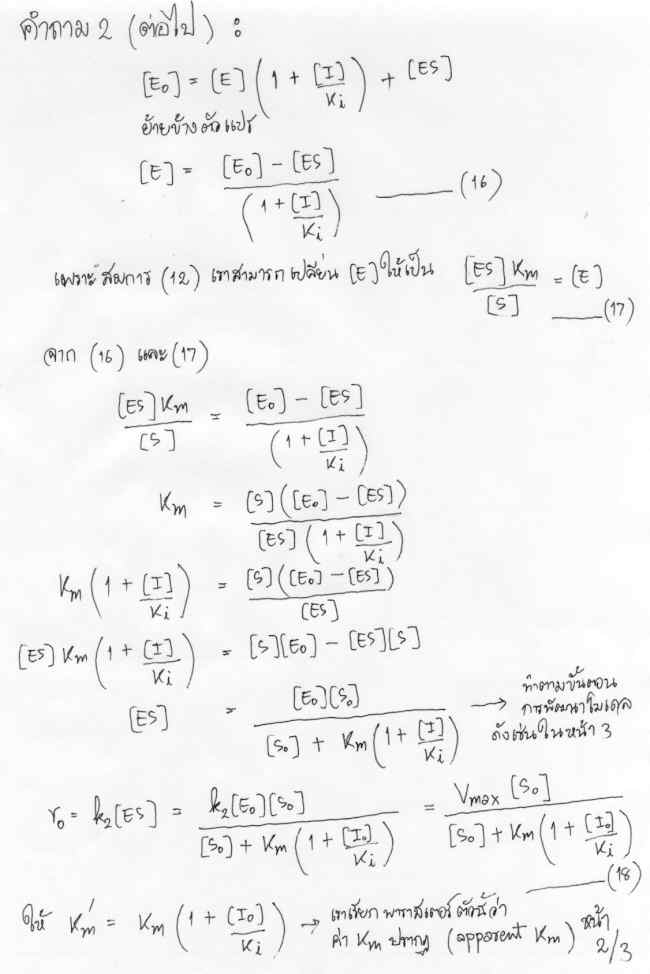 คำถาม 2 (ต่อไป) :
[E₀] = [E] (1 + [I]/Ki) + [ES]
ย้ายข้างตัวแปร
[E] = ([E₀] - [ES]) / (1 + [I]/Ki) ——— (16)
เพราะสมการ (12) เราสามารถเปลี่ยน [E] ให้เป็น [ES] Km / [S] = [E] ——— (17)
จาก (16) และ (17)
[ES] Km / [S] = ([E₀] - [ES]) / (1 + [I]/Ki)
Km = [S] ([E₀] - [ES]) / [ES] (1 + [I]/Ki)
Km (1 + [I]/Ki) = [S] ([E₀] - [ES]) / [ES]
[ES] Km (1 + [I]/Ki) = [S][E₀] - [ES][S]
[ES] = [E₀][S₀] / [S₀] + Km (1 + [I]/Ki) → ทำตามขั้นตอน
การพัฒนาโมเดล
ดังเช่นในหน้า 3
r₀ = k₂[ES] = k₂[E₀][S₀] / [S₀] + Km (1 + [I₀]/Ki) = Vmax [S₀] / [S₀] + Km (1 + [I₀]/Ki) ——— (18)
ให้ Km' = Km (1 + [I₀]/Ki) → เราเรียก พารามิเตอร์ ตัวนี้ว่า
ค่า Km ปรากฏ (apparent Km)
หน้า
2/3